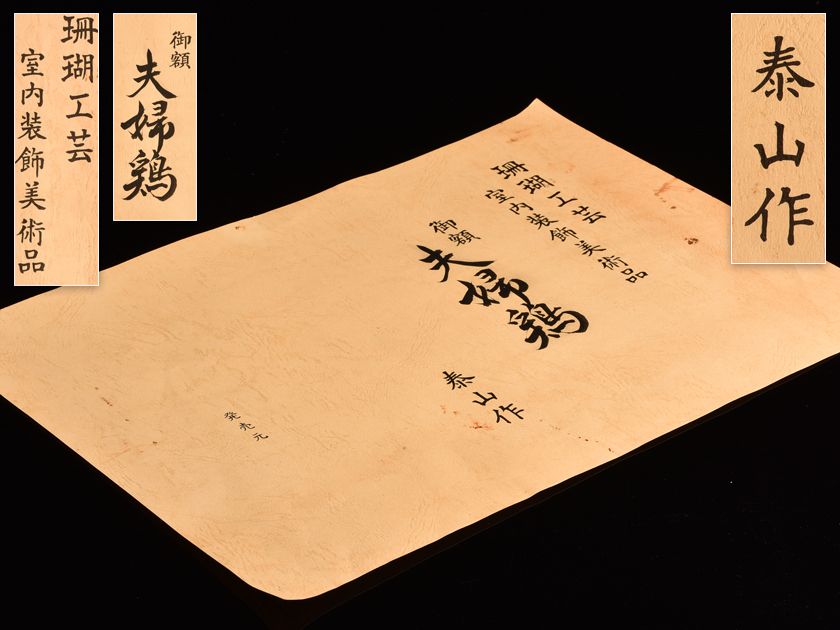 珊瑚工芸
室内装飾美術品
御額
夫婦鶏
泰山作
珊瑚工芸
室内装飾美術品
御額
夫婦鶏
泰山作
発売元